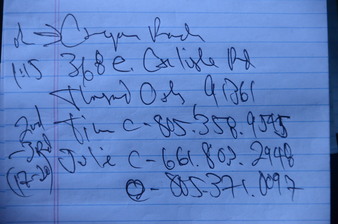 Canyon Ranch
1:15 368 E. Carlisle Rd
Thousand Oaks 91361
2nd Tim C-805.358.9595
3rd Julie C-661.803.2448
(17-20) O-805.371.0997